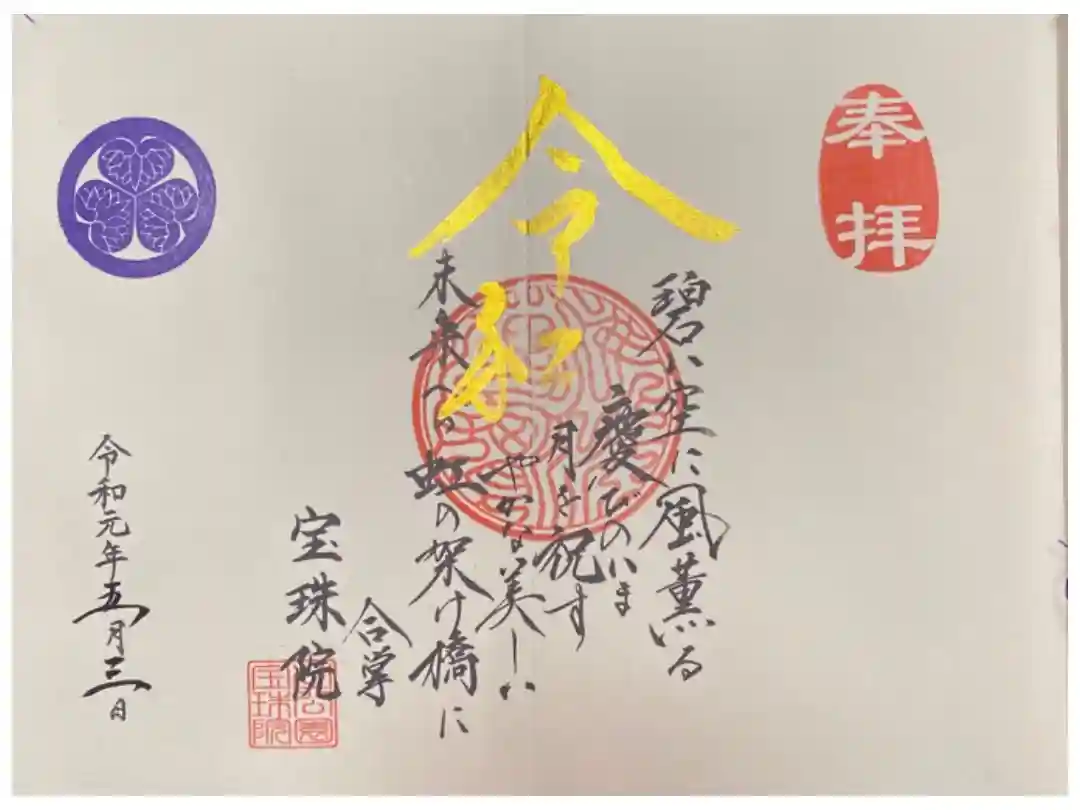 奉拝
碧い空に風薫る
慶びのいま
令和
月を祝す
やかな美しい
未来への虹の架け橋に
合掌
宝珠院
公園
宝珠院
令和元年五月三日